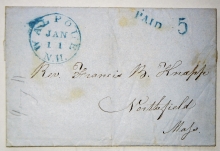 WALPOLE
JAN
11
N.H.
PAID
5
Rev. Francis B. Knapp
Northfield
Mass.